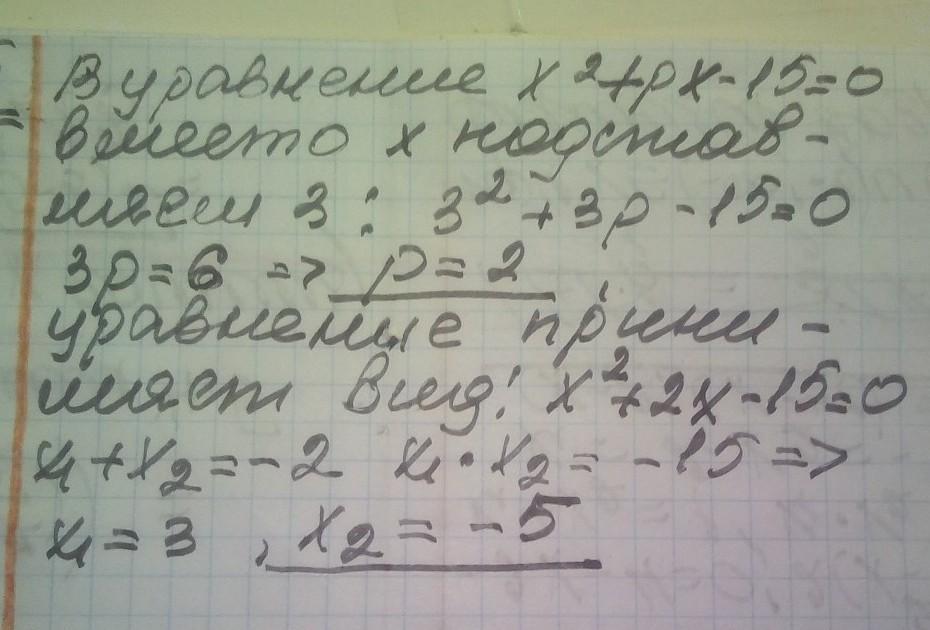 В уравнение x²+px-15=0
вместо x подстав-
ляем 3: 3²+3p-15=0
3p=6 => p=2
уравнение прини-
мает вид: x²+2x-15=0
x₁+x₂=-2 x₁·x₂=-15=>
x₁=3, x₂=-5